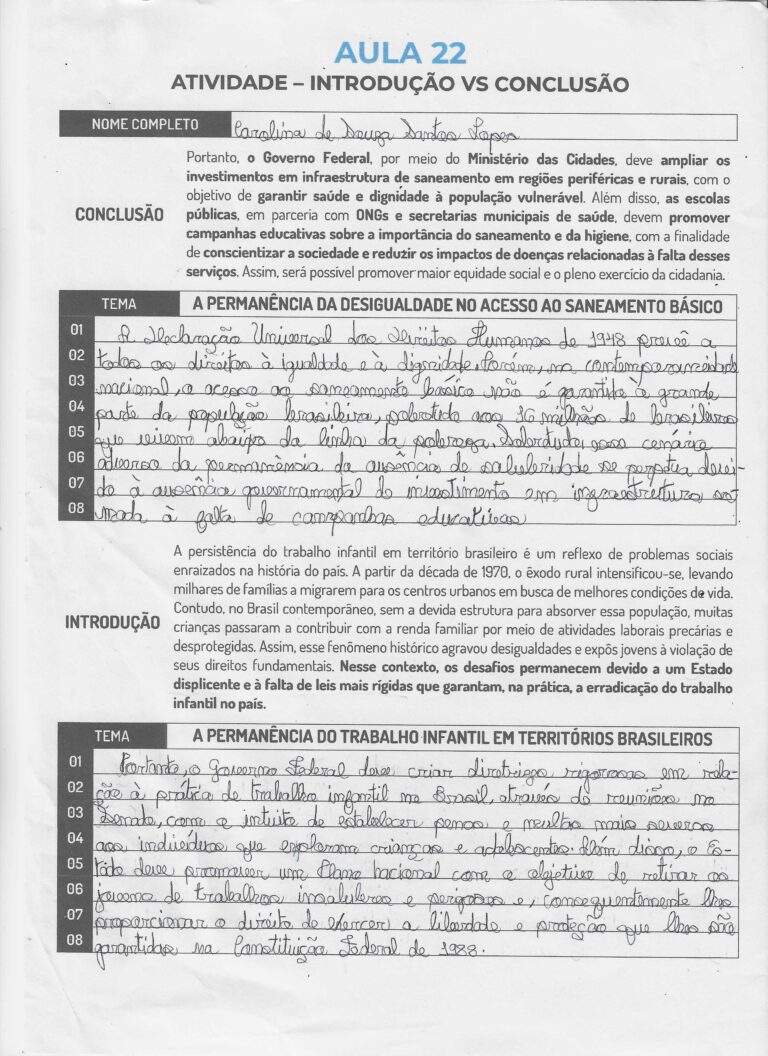 AULA 22
ATIVIDADE – INTRODUÇÃO VS CONCLUSÃO
NOME COMPLETO Carolina de Souza Santos Lopes
Portanto, o Governo Federal, por meio do Ministério das Cidades, deve ampliar os
investimentos em infraestrutura de saneamento em regiões periféricas e rurais, com o
objetivo de garantir saúde e dignidade à população vulnerável. Além disso, as escolas
CONCLUSÃO públicas, em parceria com ONGs e secretarias municipais de saúde, devem promover
campanhas educativas sobre a importância do saneamento e da higiene, com a finalidade
de conscientizar a sociedade e reduzir os impactos de doenças relacionadas à falta desses
serviços. Assim, será possível promover maior equidade social e o pleno exercício da cidadania.
TEMA A PERMANÊNCIA DA DESIGUALDADE NO ACESSO AO SANEAMENTO BÁSICO
01 A Declaração Universal dos Direitos Humanos de 1948 prevê a
02 todos os direitos à igualdade e à dignidade. Porém, na contemporaneidade
03 nacional, o acesso ao saneamento básico não é garantido à grande
04 parte da população brasileira, sobretudo aos 36 milhões de brasileiros
05 que vivem abaixo da linha da pobreza. Sobretudo, esse cenário
06 adverso da permanência da ausência de salubridade se perpetua devi-
07 do à ausência governamental do investimento em infraestrutura so-
08 mada à falta de campanhas educativas
A persistência do trabalho infantil em território brasileiro é um reflexo de problemas sociais
enraizados na história do país. A partir da década de 1970, o êxodo rural intensificou-se, levando
milhares de famílias a migrarem para os centros urbanos em busca de melhores condições de vida.
INTRODUÇÃO Contudo, no Brasil contemporâneo, sem a devida estrutura para absorver essa população, muitas
crianças passaram a contribuir com a renda familiar por meio de atividades laborais precárias e
desprotegidas. Assim, esse fenômeno histórico agravou desigualdades e expôs jovens à violação de
seus direitos fundamentais. Nesse contexto, os desafios permanecem devido a um Estado
displicente e à falta de leis mais rígidas que garantam, na prática, a erradicação do trabalho
infantil no país.
TEMA A PERMANÊNCIA DO TRABALHO INFANTIL EM TERRITÓRIOS BRASILEIROS
01 Portanto, o Governo Federal deve criar diretrizes rigorosas em rela-
02 ção à prática de trabalho infantil no Brasil, através de reuniões no
03 Senado, com o intuito de estabelecer penas e multas mais severas
04 aos indivíduos que exploram crianças e adolescentes. Além disso, o Es-
05 tado deve promover um Plano nacional com o objetivo de retirar os
06 jovens de trabalhos insalubres e perigosos e, consequentemente lhes
07 proporcionar o direito de exercer a liberdade e proteção que lhes são
08 garantidas na Constituição Federal de 1988.